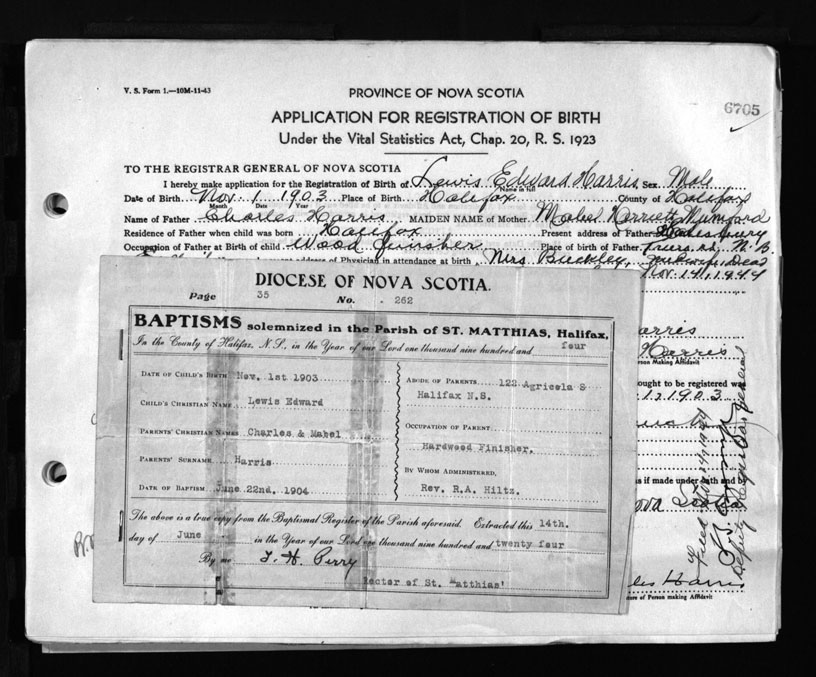 V. S. Form 1.—10M-11-43
PROVINCE OF NOVA SCOTIA
6705
APPLICATION FOR REGISTRATION OF BIRTH
Under the Vital Statistics Act, Chap. 20, R. S. 1923
TO THE REGISTRAR GENERAL OF NOVA SCOTIA
I hereby make application for the Registration of Birth of Lewis Edward Harris Sex Male
Name in full
Date of Birth Nov. 1 1903 Place of Birth Halifax County of Halifax
Month Date Year
Name of Father Charles Harris MAIDEN NAME of Mother Mabel Harriett Mumford
Residence of Father when child was born Halifax Present address of Father
Occupation of Father at Birth of child Wood finisher Place of birth of Father N.B.
address of Physician in attendance at birth Mrs Buckley, Midwife, Dead
Nov. 14, 1944
DIOCESE OF NOVA SCOTIA.
Page 35 No. 262
BAPTISMS solemnized in the Parish of ST. MATTHIAS, Halifax,
In the County of Halifax, N.S., in the Year of our Lord one thousand nine hundred and four
DATE OF CHILD'S BIRTH Nov. 1st 1903
CHILD'S CHRISTIAN NAME Lewis Edward
PARENTS' CHRISTIAN NAMES Charles & Mabel
PARENTS' SURNAME Harris
DATE OF BAPTISM June 22nd. 1904
ABODE OF PARENTS 122 Agricola S
Halifax N.S.
OCCUPATION OF PARENT
Hardwood Finisher.
BY WHOM ADMINISTERED,
Rev. R.A. Hiltz.
The above is a true copy from the Baptismal Register of the Parish aforesaid. Extracted this 14th.
day of June in the Year of our Lord one thousand nine hundred and twenty four
By me T. H. Perry
Rector of St. Matthias'
arris
Harris
Person Making Affidavit
ought to be registered was
1, 1903
as if made under oath and by
ova Scotia
Deputy Registrar General
les Harris
ture of Person making Affidavit